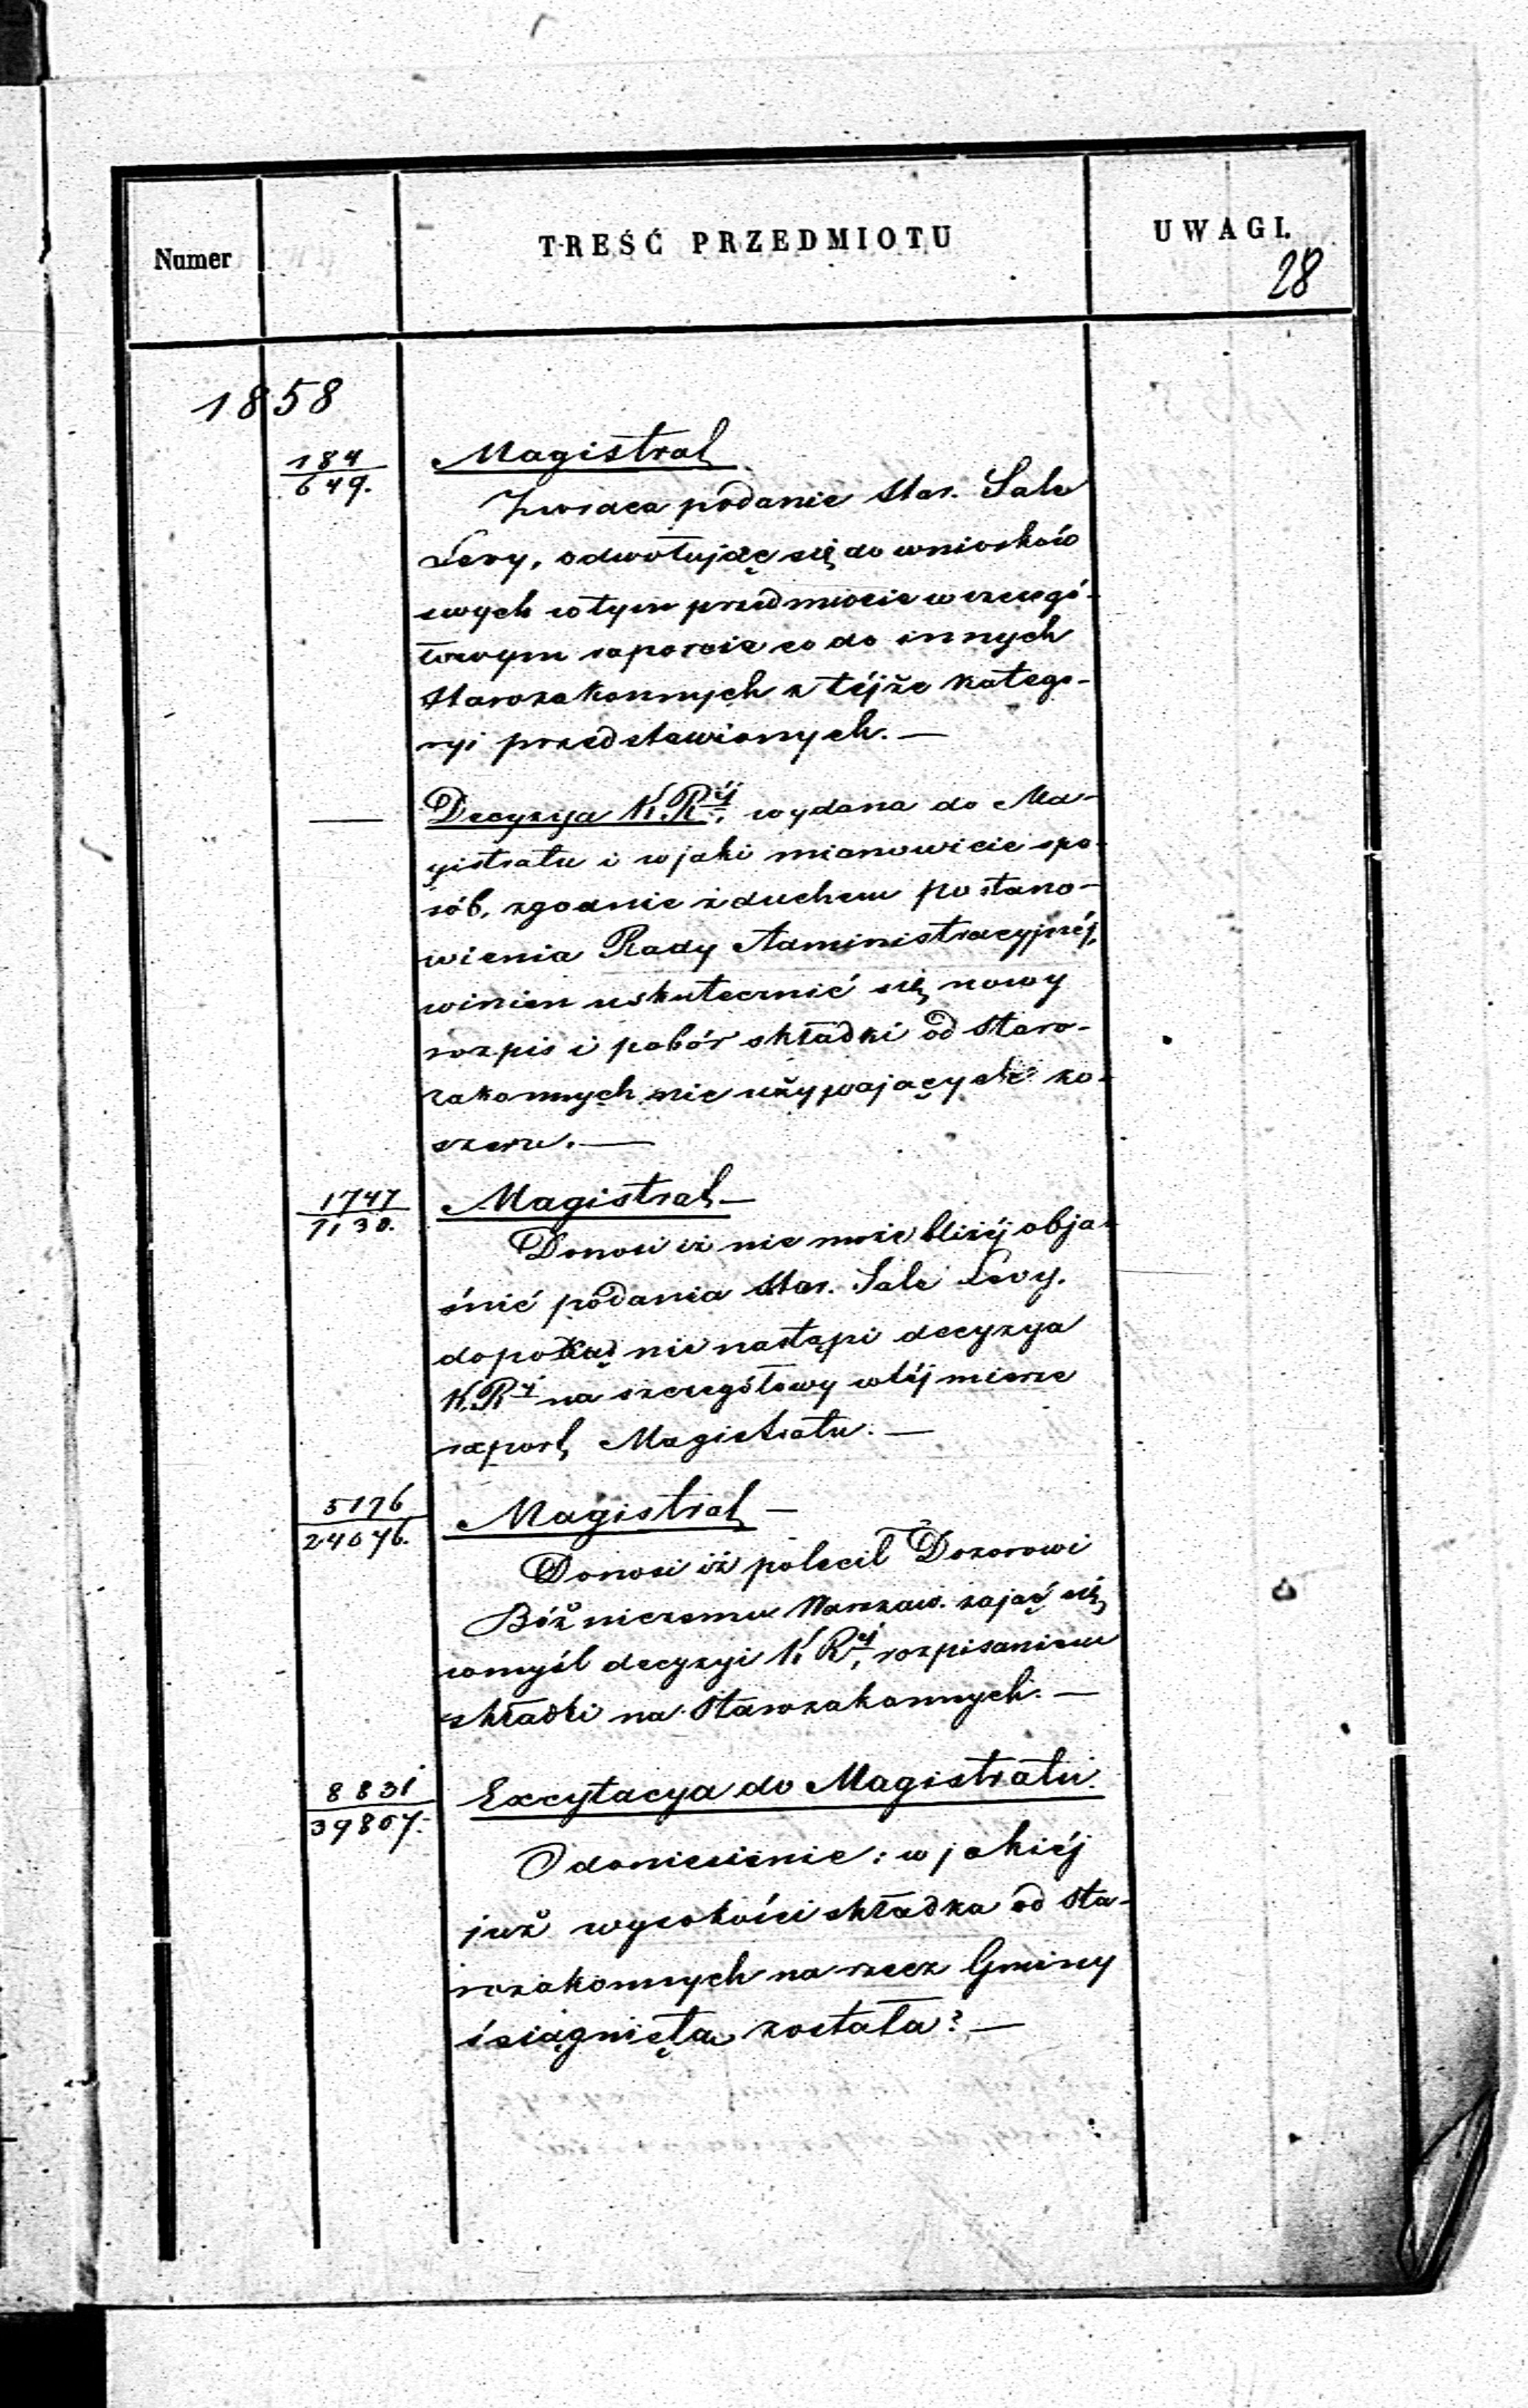 Numer
TREŚĆ PRZEDMIOTU
UWAGI.
28
1858
184
649.
Magistrat
Zwraca podanie Star. Sale
Levy, odwołując się do wniosków
swych w tym przedmiocie w szczegó-
łowym raporcie co do innych
Starozakonnych z téjże katego-
ryi przedstawionych. —
— Decyzya K.R.ẏ. wydana do Ma-
gistratu i w jaki mianowicie spo-
sób, zgodnie z duchem postano-
wienia Rady Administracyjnéj,
winien uskutecznić się nowy
rozpis i pobór składki od Staro-
zakonnych nie używających ko-
szeru. —
1747
1130.
Magistrat —
Donosi iż nie może bliżéj obja-
śnić podania Star. Sale Levy.
dopokąd nie nastąpi decyzya
K.R.ẏ na szczegółowy w téj mierze
raport Magistratu. —
5176
24046.
Magistrat —
Donosi iż polecił Dozorowi
Bóżniczemu Warszaw. zająć się
w myśl decyzyi K.R.ẏ, rozpisaniem
składki na Starozakonnych. —
8831
39867.
Excytacya do Magistratu.
O doniesienie: w jakiéj
już wysokości składka od Sta-
rozakonnych na rzecz Gminy
ściągnięta została? —